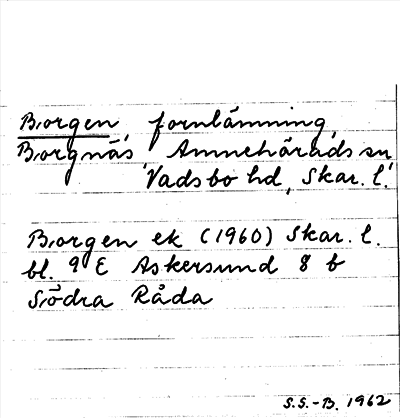 Borgen, fornlämning,
Borgnäs, Amnehärads sn,
Vadsbo hd, Skar. l.
Borgen ek (1960) Skar. l.
bl. 9 E Askersund 8 b
Södra Råda
S.S.-B. 1962